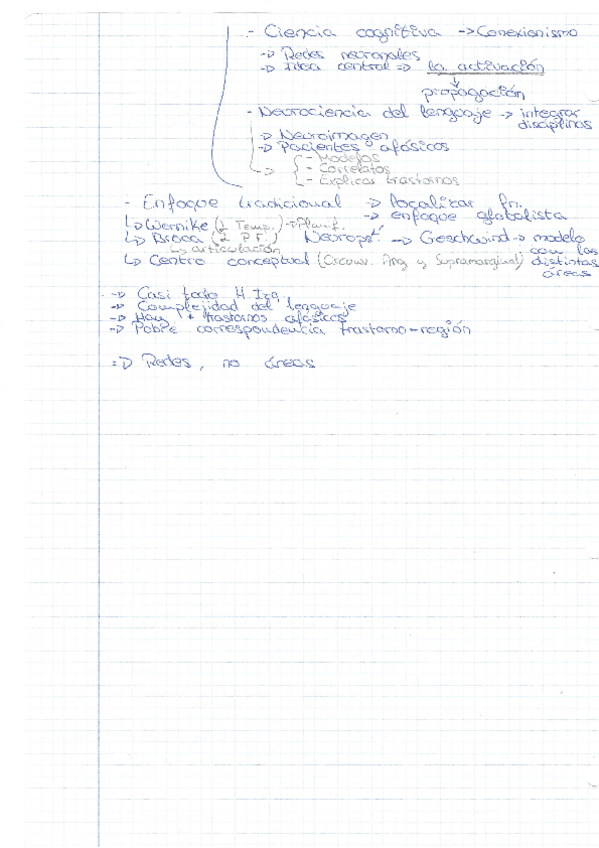 - Ciencia cognitiva -> Conexionismo
-> Redes neuronales
-> Idea central => la activación
↓
propagación
- Neurociencia del lenguaje -> integrar
disciplinas
-> Neuroimagen
-> Pacientes afásicos
- Modelos
- Correlatos
- Explicar trastornos
- Enfoque tradicional -> localizar fn.
-> enfoque globalista
↳ Wernike (1 Temp.) -> Planif.
↳ Broca (2 P.F.) Neurops. -> Geschwind -> modelo
↳ articulación con las
↳ Centro conceptual (Circunv. Ang y Supramarginal) distintas
áreas
-> Casi todo H. Izq.
-> Complejidad del lenguaje
-> Hay + trastornos afásicos
-> Pobre correspondencia trastorno-región
=> Redes, no áreas